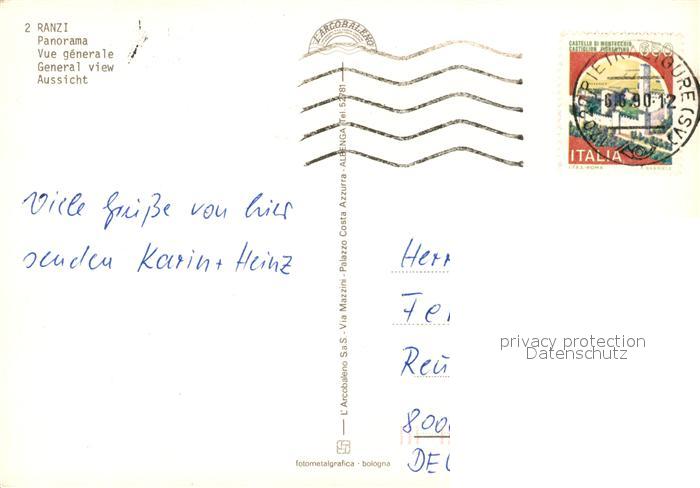 2 RANZI
Panorama
Vue génerale
General view
Aussicht
L'ARCOBALENO
CASTELLO DI MONTECCHIO
CASTIGLION FIORENTINO
PIETRA LIGURE (SV)
6.6.90-12
ITALIA
I.P.Z.S.-ROMA
Viele Grüße von hier
senden Karin + Heinz
L'Arcobaleno S.a.S. - Via Mazzini - Palazzo Costa Azzurra - ALBENGA (Tel. 52781)
Herr
Fe
Reu
privacy protection
Datenschutz
800
DEU
fotometalgrafica · bologna